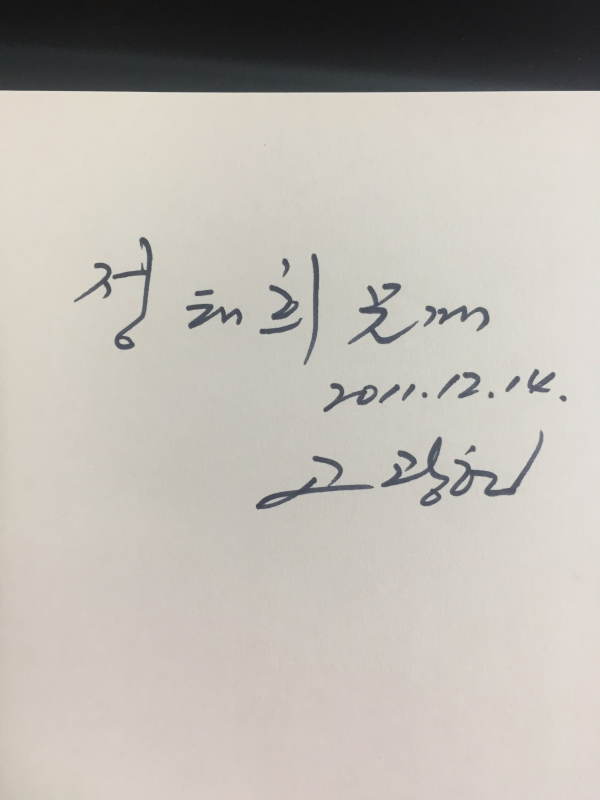 정태희 분께
2011.12.14.
고광헌